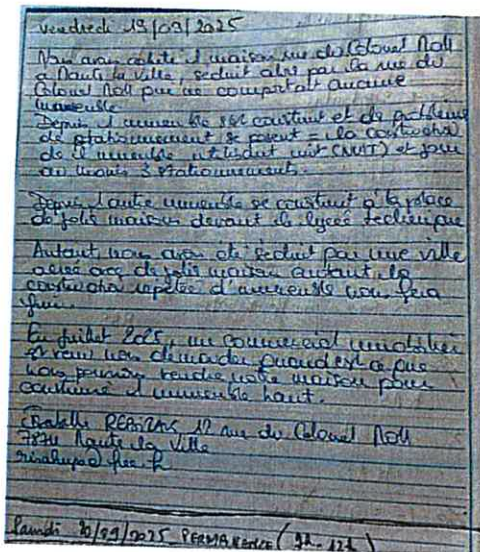 vendredi 19/09/2025
Nous avons acheté 1 maison rue du Colonel Moll
à Mante la ville, séduit alors par la rue du
Colonel Moll qui ne comportait aucune
immeuble
Depuis 1 immeuble s'est construit et des problème
de stationnement se posent = la construction
de l'immeuble utilisant nuit (NUIT) et jour
au moins 3 stationnements.
Depuis 1 autre immeuble se construit à la place
de jolie maison devant le lycée technique
Autant nous avons été séduit par une ville
aérée avec de jolis maison autant la
construction répétée d'immeuble nous fera
fuir.
En juillet 2025, un commercial immobilier
est venu nous demander quand est ce que
nous pourrions vendre notre maison pour
construire 1 immeuble haut.
12 rue du Colonel Moll
Mante la Ville
Samedi 20/09/2025 PERMANENCE (9h-12h)